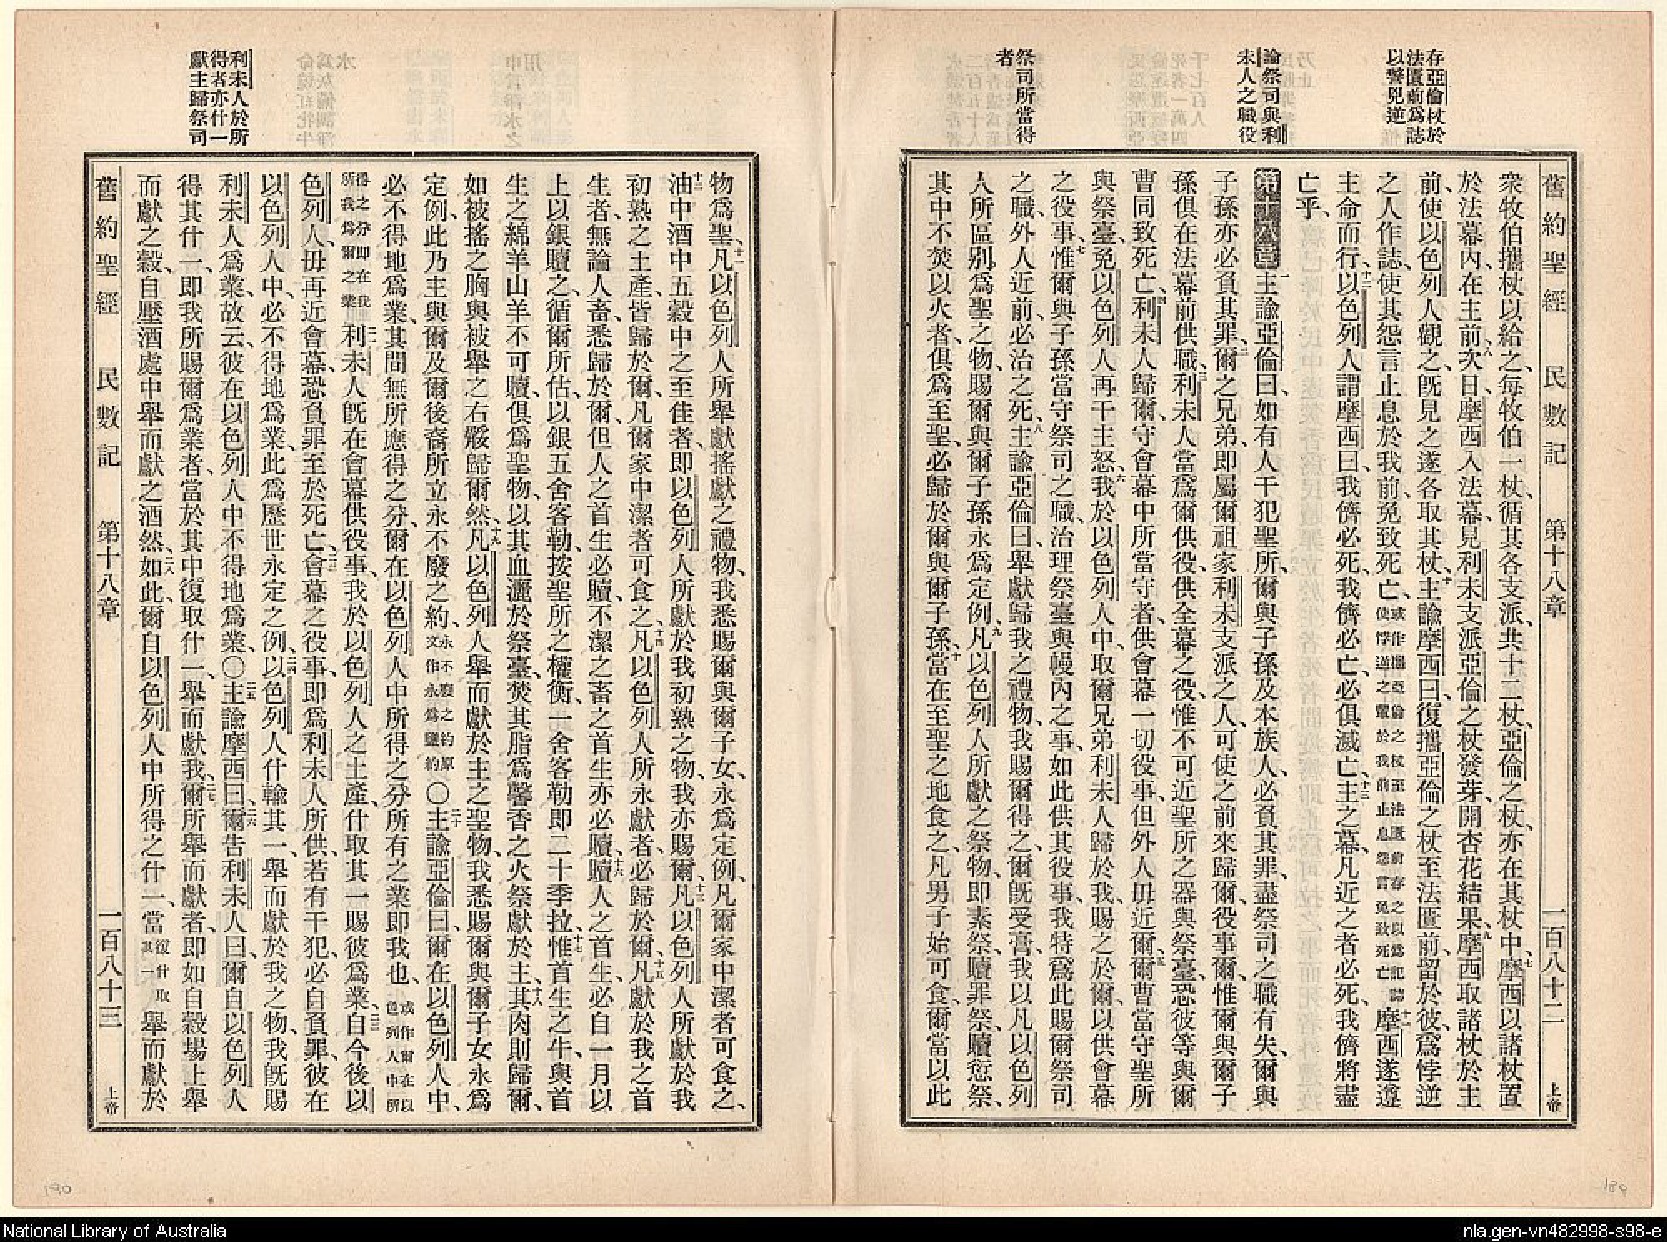 存亞倫杖於
法匱前爲誌
以警兇逆
論祭司與利
未人之職役
祭司所當得
者
舊約聖經 民數記 第十八章 一百八十二 上帝
衆牧伯攜杖以給之、每牧伯一杖、循其各支派、共十二杖、亞倫之杖、亦在其杖中、七摩西以諸杖置
於法幕內、在主前、八次日、摩西入法幕、見利未支派亞倫之杖發芽、開杏花、結果、九摩西取諸杖於主
前、使以色列人觀之、旣見之、遂各取其杖、十主諭摩西曰、復攜亞倫之杖至法匱前、留於彼、爲悖逆
之人作誌、使其怨言止息於我前、免致死亡、或作攜亞倫之杖至法匱前存之以爲記號使悖逆之輩於我前止息怨言免致死亡十一摩西遂遵
主命而行、十二以色列人謂摩西曰、我儕必死、我儕必亡、必俱滅亡、十三主之幕、凡近之者必死、我儕將盡
亡乎、
第十八章 一主諭亞倫曰、如有人干犯聖所、爾與子孫及本族人、必負其罪、盡祭司之職有失、爾與
子孫亦必負其罪、二爾之兄弟、卽屬爾祖家利未支派之人、可使之前來歸爾、役事爾、惟爾與爾子
孫俱在法幕前供職、三利未人當爲爾供役、供全幕之役、惟不可近聖所之器與祭臺、恐彼等與爾
曹同致死亡、四利未人歸爾、守會幕中所當守者、供會幕一切役事、但外人毋近爾、五爾曹當守聖所
與祭臺、免以色列人再干主怒、六我於以色列人中、取爾兄弟利未人歸於我、賜之於爾、以供會幕
之役事、七惟爾與子孫當守祭司之職、治理祭臺與幔內之事、如此供其役事、我特爲此賜爾祭司
之職、外人近前、必治之死、八主諭亞倫曰、舉獻歸我之禮物、我賜爾得之、爾旣受膏、我以凡以色列
人所區別爲聖之物、賜爾與爾子孫永爲定例、九凡以色列人所獻之祭物、卽素祭、贖罪祭、贖愆祭、
其中不焚以火者、俱爲至聖、必歸於爾與爾子孫、十當在至聖之地食之、凡男子始可食、爾當以此
利未人於所
得者亦什一
獻主歸祭司
物爲聖、十一凡以色列人所舉獻搖獻之禮物、我悉賜爾與爾子女、永爲定例、凡爾家中潔者可食之、
十二油中酒中五穀中之至佳者、卽以色列人所獻於我初熟之物、我亦賜爾、十三凡以色列人所獻於我
初熟之土產、皆歸於爾、凡爾家中潔者可食之、十四凡以色列人所永獻者、必歸於爾、十五凡獻於我之首
生者、無論人畜、悉歸於爾、但人之首生必贖、不潔之畜之首生亦必贖、十六贖人之首生、必自一月以
上、以銀贖之、循爾所估、以銀五舍客勒、按聖所之權衡、一舍客勒卽二十季拉、十七惟首生之牛、與首
生之綿羊山羊、不可贖、俱爲聖物、以其血灑於祭臺、焚其脂爲馨香之火祭、獻於主、十八其肉則歸爾、
如被搖之胸與被舉之右骽歸爾然、十九凡以色列人舉而獻於主之聖物、我悉賜爾與爾子女永爲
定例、此乃主與爾及爾後裔所立永不廢之約、永不廢之約原文作永爲鹽約〇二十主諭亞倫曰、爾在以色列人中、
必不得地爲業、其間無所應得之分、爾在以色列人中所得之分、所有之業卽我也、或作爾在以色列人中所
得之分卽在我所我爲爾之業二一利未人旣在會幕供役事、我於以色列人之土產、什取其一賜彼爲業、二二自今後以
色列人毋再近會幕、恐負罪至於死亡、二三會幕之役事、卽爲利未人所供、若有干犯、必自負罪、彼在
以色列人中、必不得地爲業、此爲歷世永定之例、二四以色列人什輸其一、舉而獻於我之物、我旣賜
利未人爲業、故云、彼在以色列人中不得地爲業、〇二五主諭摩西曰、二六爾告利未人曰、爾自以色列人
得其什一、卽我所賜爾爲業者、當於其中復取什一、舉而獻我、二七爾所舉而獻者、卽如自穀場上舉
而獻之穀、自壓酒處中舉而獻之酒然、二八如此、爾自以色列人中所得之什一、當復什取其一舉而獻於
舊約聖經 民數記 第十八章 一百八十三 上帝
190
189
National Library of Australia
nla.gen-vn482998-s98-e